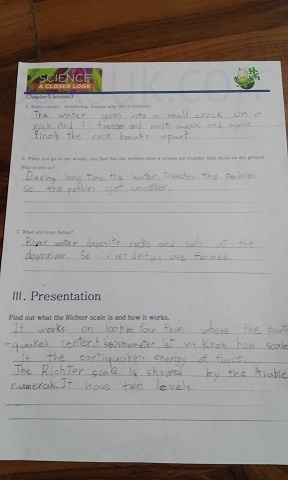 SCIENCE
A CLOSER LOOK
Chapter5 lesson3
5. Water causes weathering. Explain why this is possible.
The water goes into a small crack on a
rock. And it freezes and melts again and again.
Finely the rock breaks apart.
6. When you go in the woods, you find that the pebbles near a stream are rounder than those on dry ground.
Why is this so?
During long time, the water touches the pebbles
So the pebbles get smoother.
7. What are river deltas?
River water deposite rocks and soils at the
downriver. So river deltas are formed.
III. Presentation
Find out what the Richter scale is and how it works.
It works on 100km far from where the earth
-quakes center. Seismometer let us know how scale
is the earthquakes energy of force.
The Richter scale is showed by the Arabic
numerals. It have ten levels.